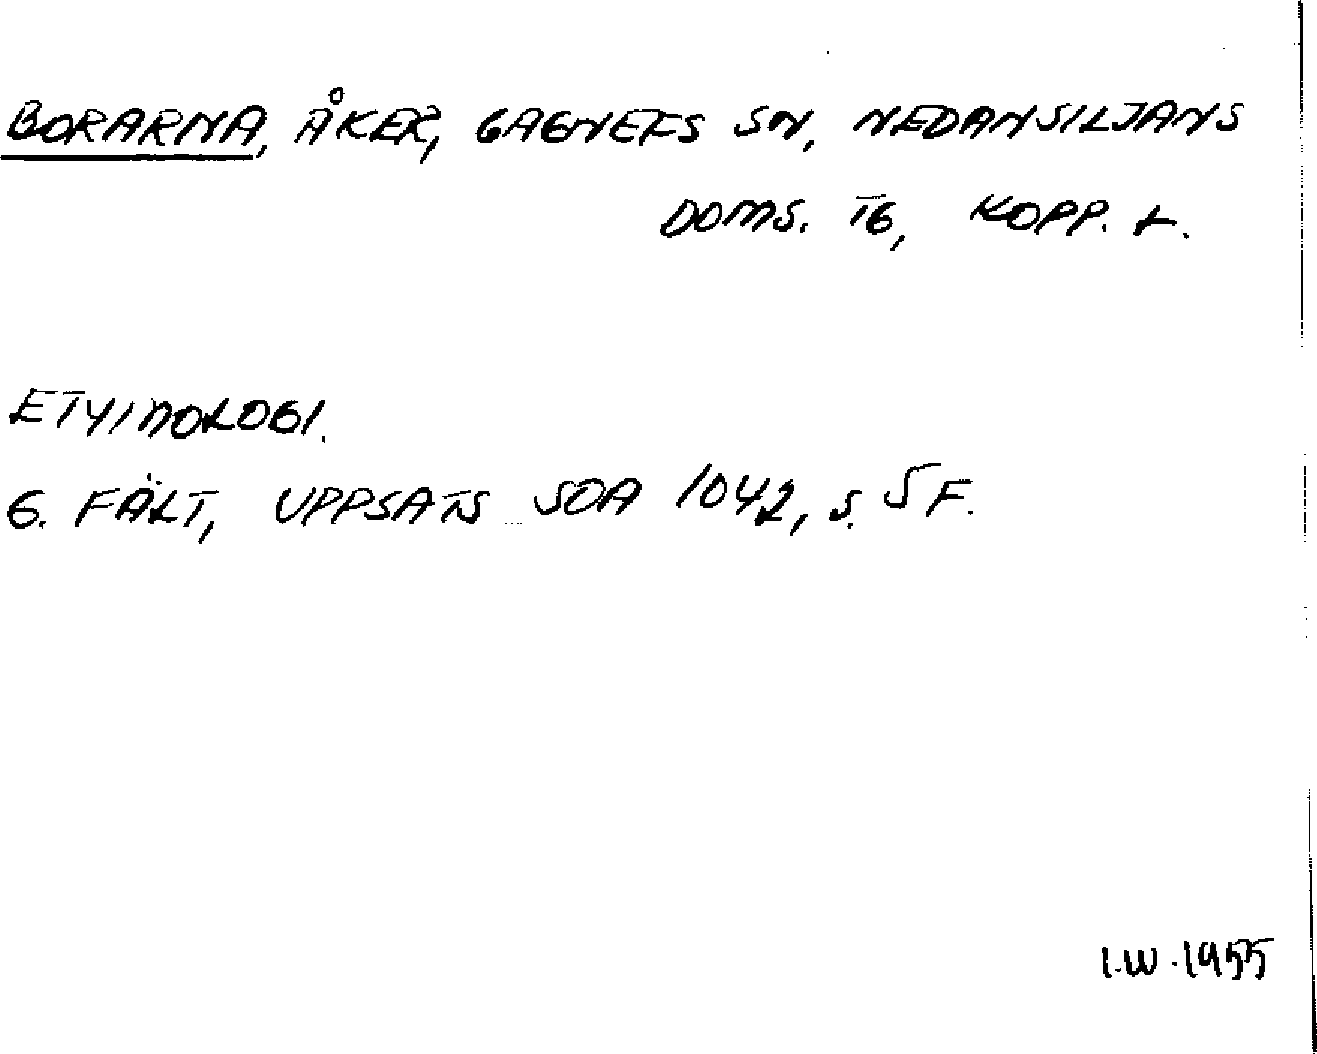 BORARNA, ÅKER, GAGNEFS SN, NEDANSILJANS
DOMS. TG, KOPP. L.
ETYMOLOGI.
G. FÄLT, UPPSATS SOA 1042, S. 5 F.
I.W. 1955